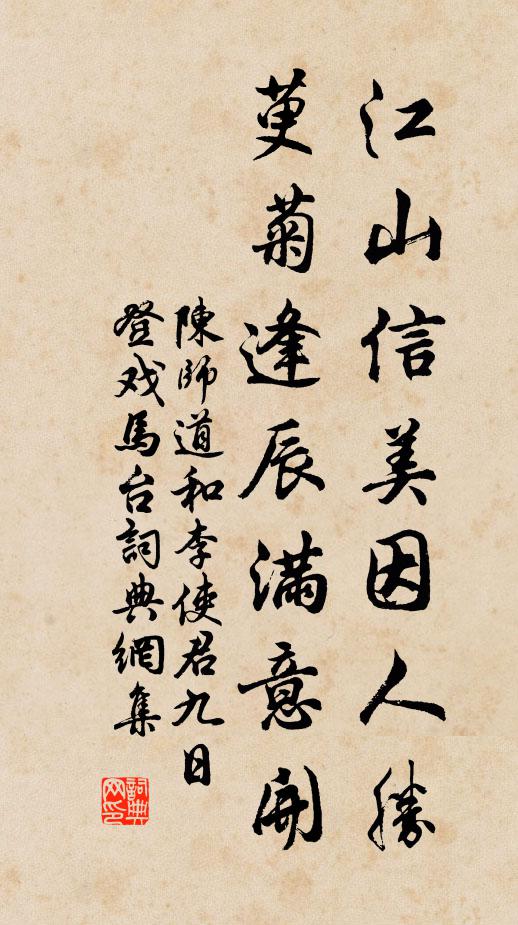 江山信美因人勝
萸菊逢辰滿意開
陳師道和李使君九日
登戏馬台詞典網集
詞典网印